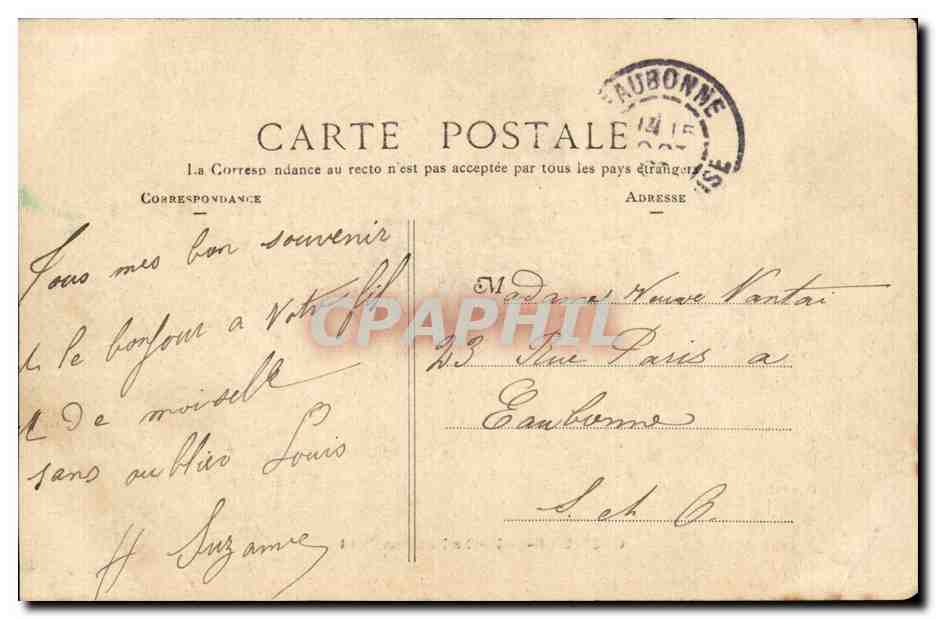 AUBONNE
CARTE POSTALE
La Correspondance au recto n'est pas acceptée par tous les pays étrangers
CORRESPONDANCE
ADRESSE
Tous mes bon souvenir
le bonjour a Votre fil
De moiselle
sans oublier Louis
Suzanne
Madame Veuve Nantai
23 Rue Paris a
Eaubonne
S. et O.
CPAPHIL